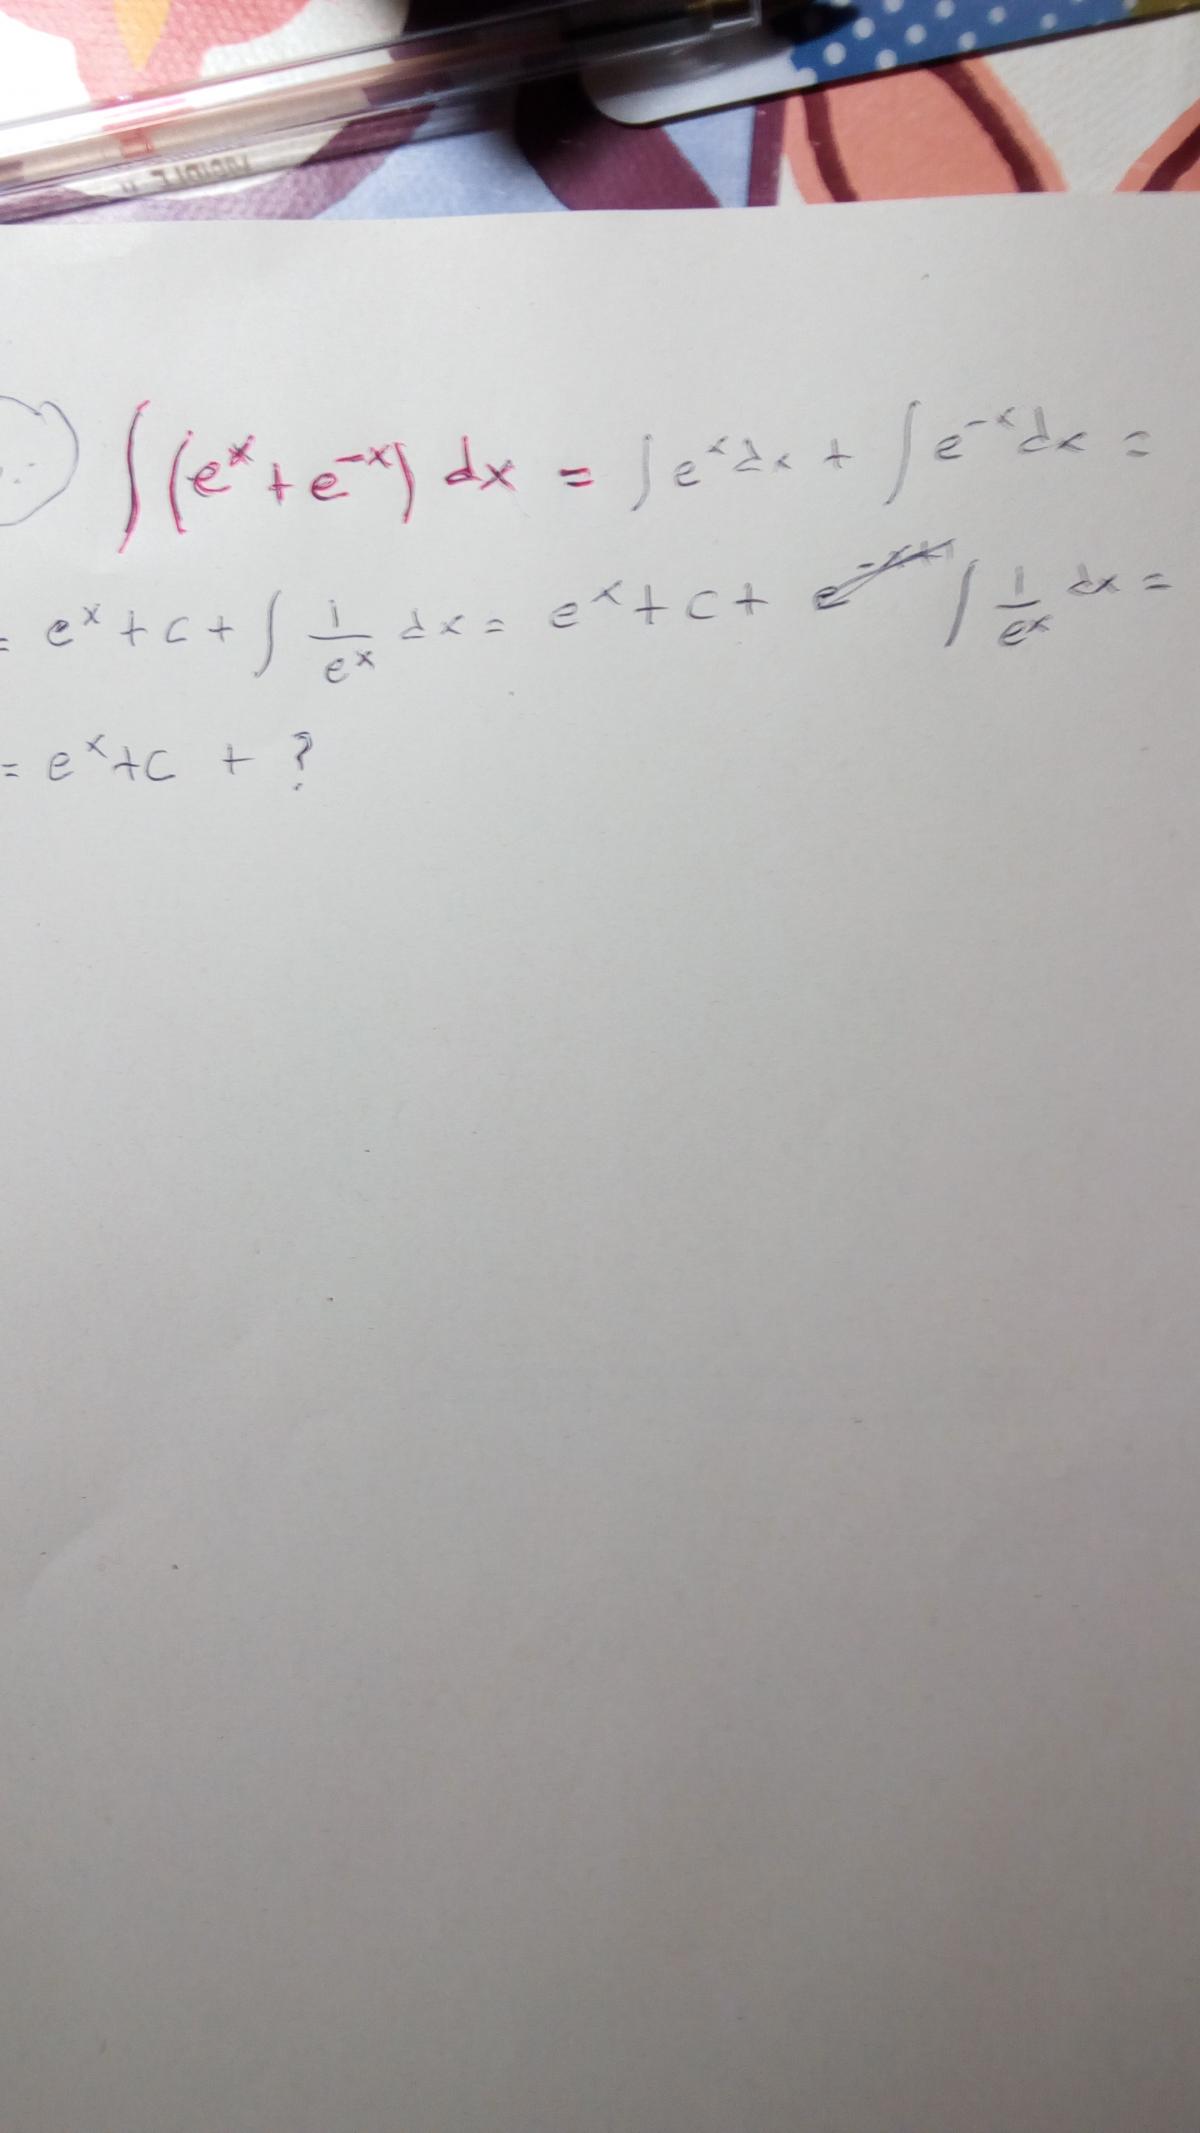 ∫(e^x + e^-x) dx = ∫e^x dx + ∫e^-x dx =
= e^x + c + ∫ 1/e^x dx = e^x + c + ∫ 1/e^x dx =
= e^x + c + ?